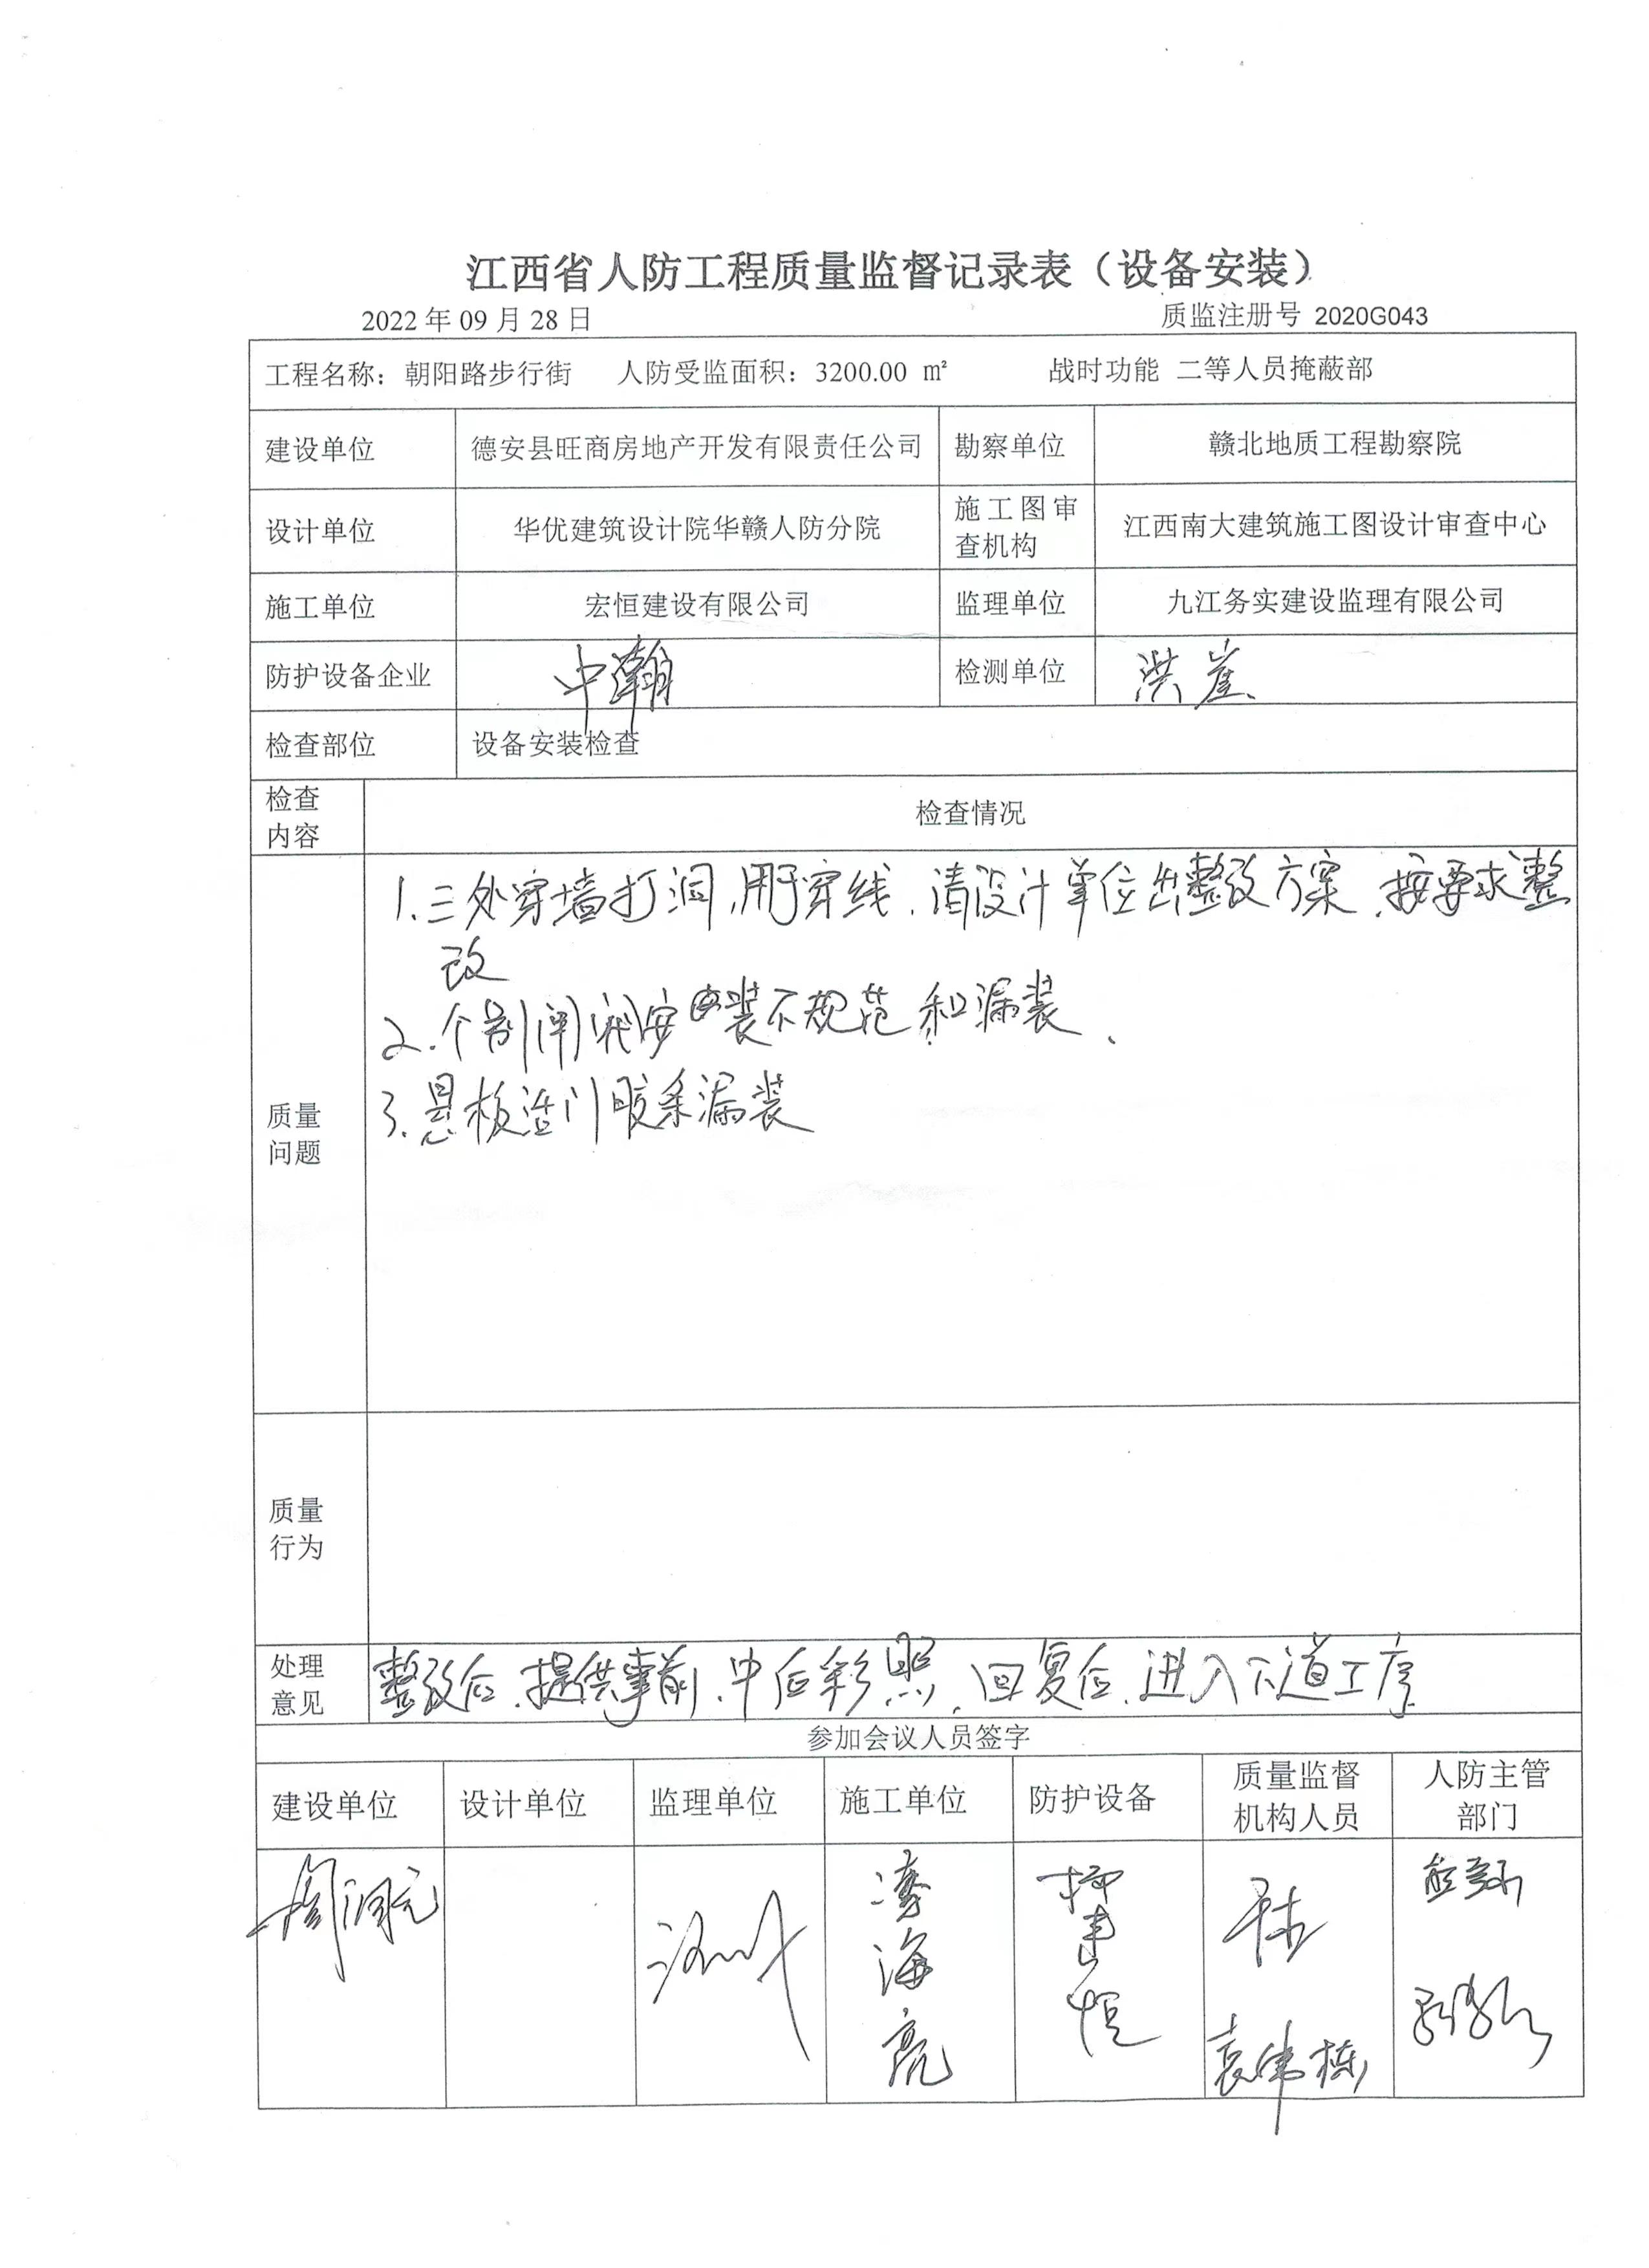 江西省人防工程质量监督记录表（设备安装）
2022 年 09 月 28 日 质监注册号 2020G043
工程名称：朝阳路步行街 人防受监面积：3200.00 ㎡ 战时功能 二等人员掩蔽部
建设单位 德安县旺商房地产开发有限责任公司 勘察单位 赣北地质工程勘察院
设计单位 华优建筑设计院华赣人防分院 施工图审
查机构 江西南大建筑施工图设计审查中心
施工单位 宏恒建设有限公司 监理单位 九江务实建设监理有限公司
防护设备企业 中瀚 检测单位 洪崖
检查部位 设备安装检查
检查
内容 检查情况
质量
问题
1.三处穿墙打洞,用于穿线.请设计单位出整改方案.按要求整
改
2.个别闸阀安装不规范和漏装.
3.悬板活门胶条漏装
质量
行为
处理
意见
整改后.提供事前.中后彩照.回复后.进入下道工序
参加会议人员签字
建设单位 设计单位 监理单位 施工单位 防护设备 质量监督
机构人员 人防主管
部门
周润元
海
亮
袁伟栋